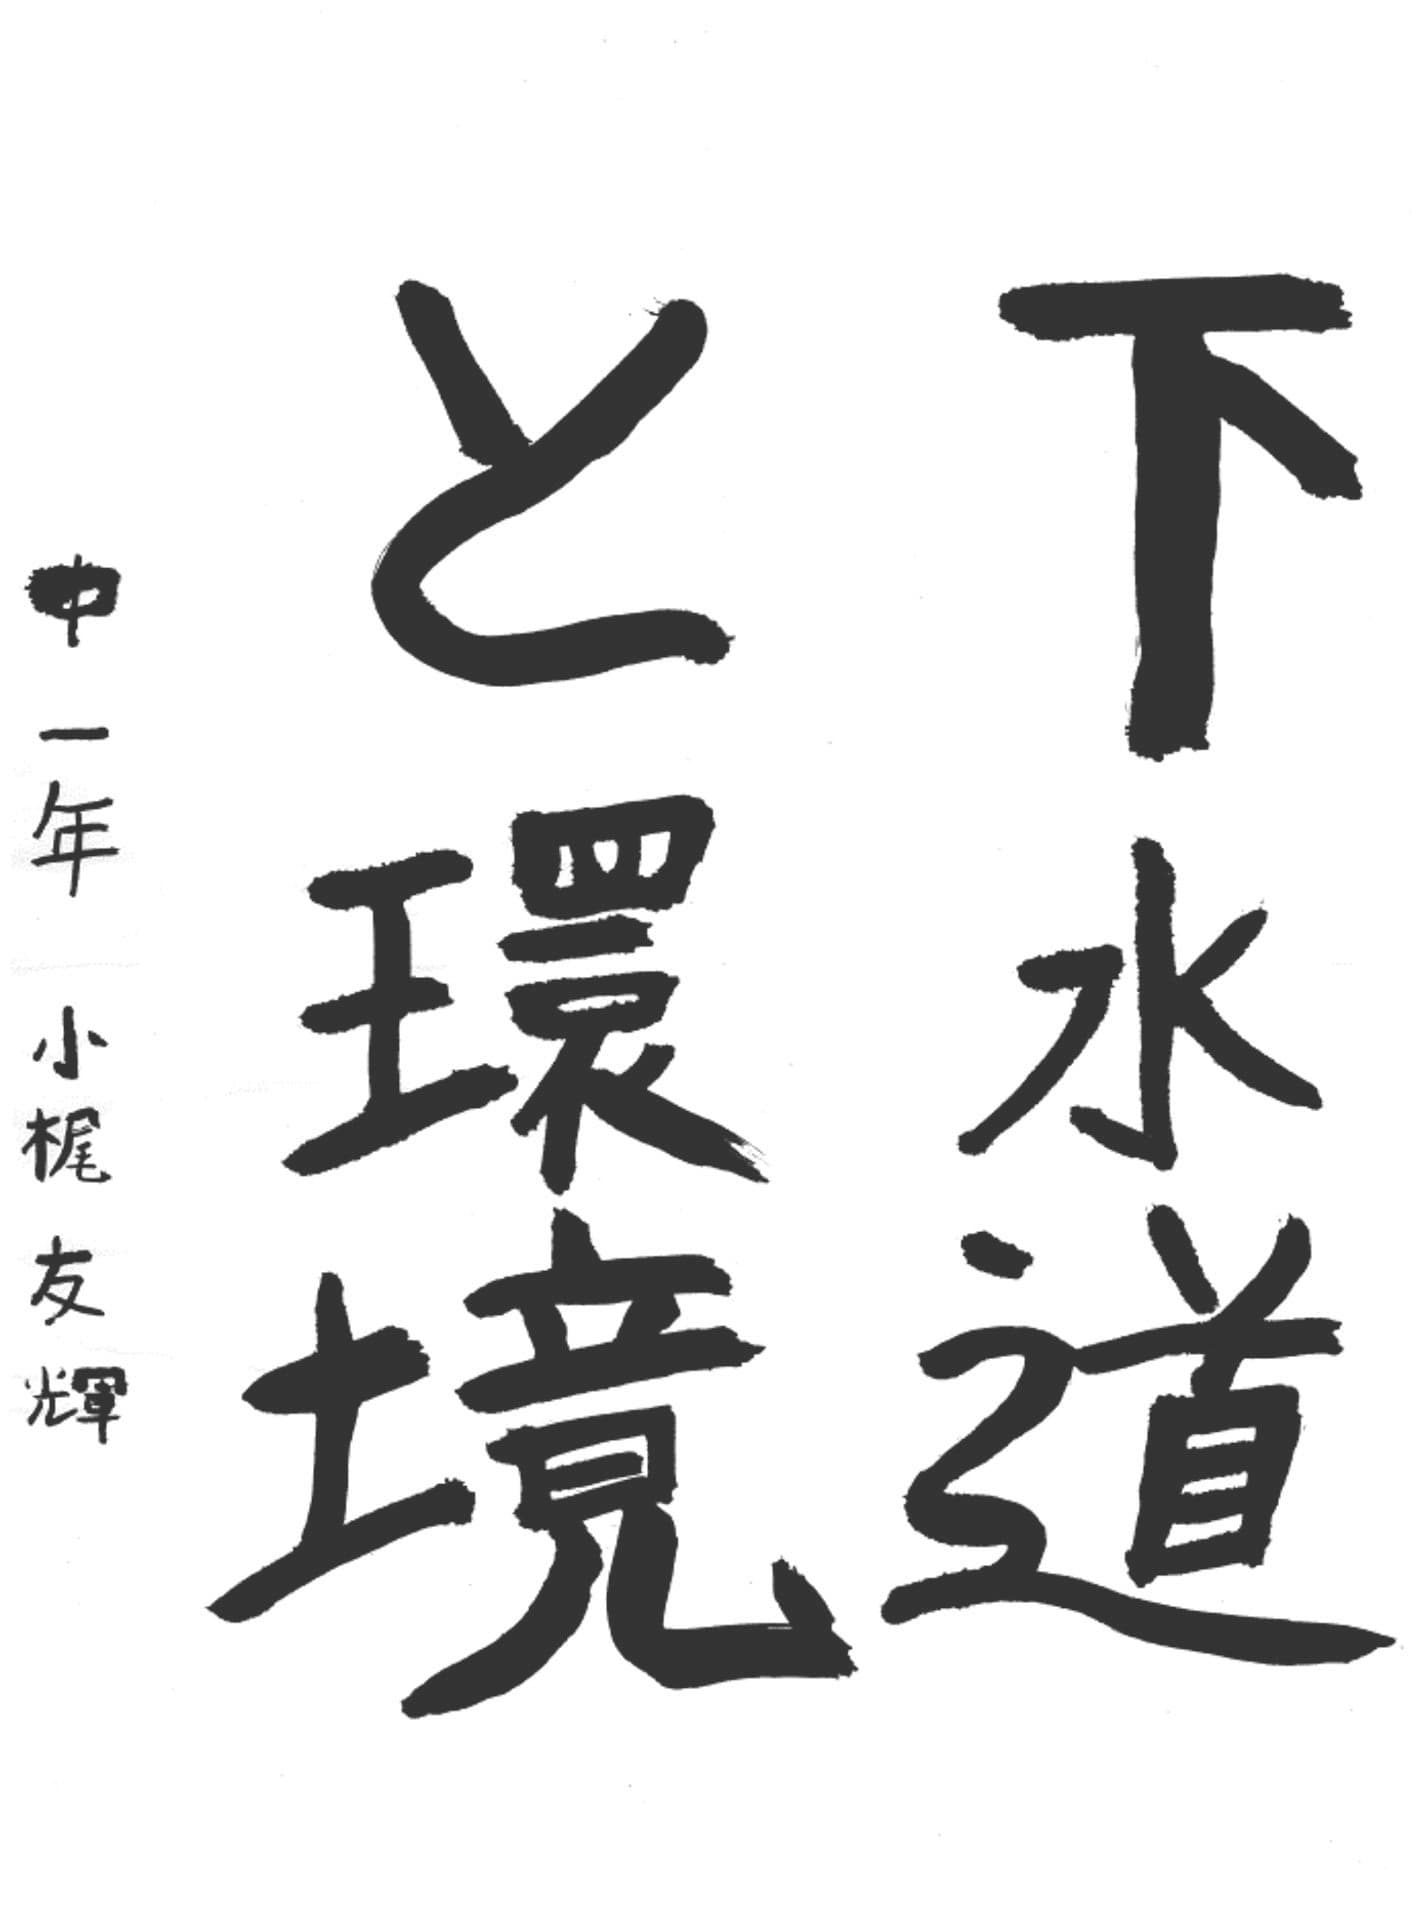 下水道
と環境
中一年 小梶友輝